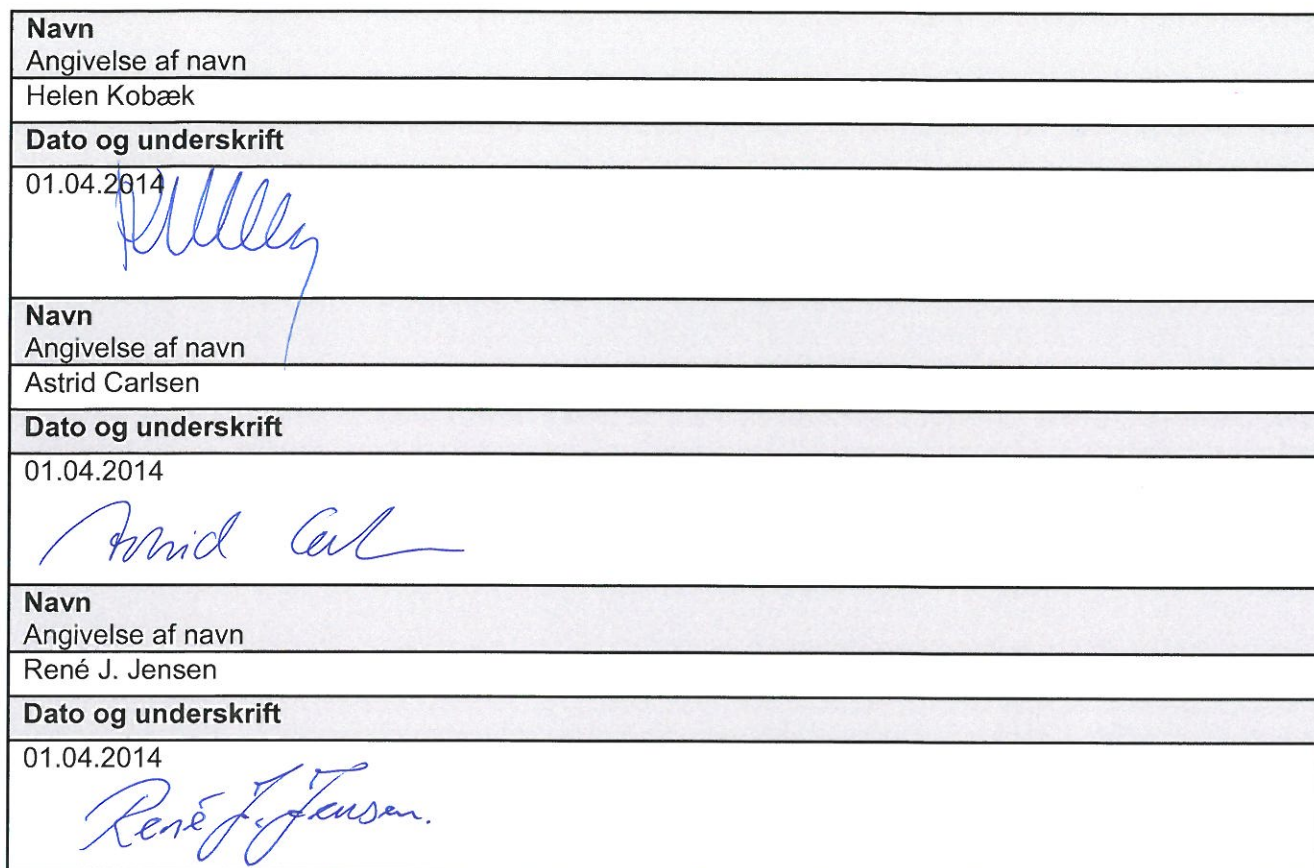 Navn
Angivelse af navn
Helen Kobæk
Dato og underskrift
01.04.2014
Navn
Angivelse af navn
Astrid Carlsen
Dato og underskrift
01.04.2014
Astrid
Navn
Angivelse af navn
René J. Jensen
Dato og underskrift
01.04.2014
René J. Jensen.